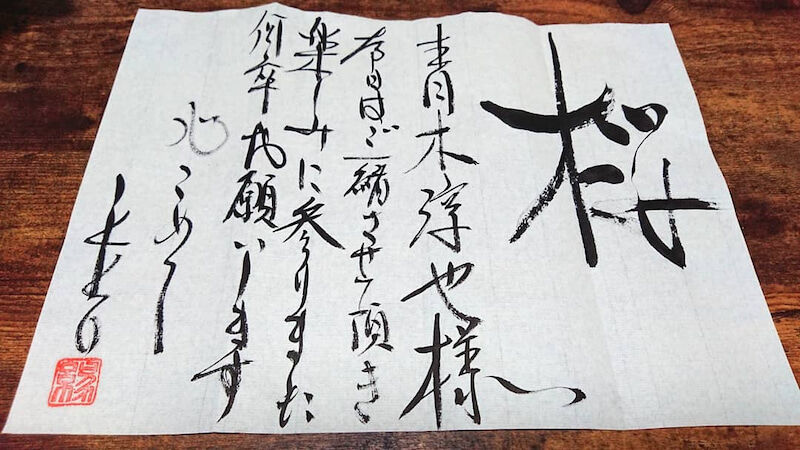 桜
青木淳也様
本日はご一緒させて頂き
楽しみに参りました
何卒お願いします
心こめて